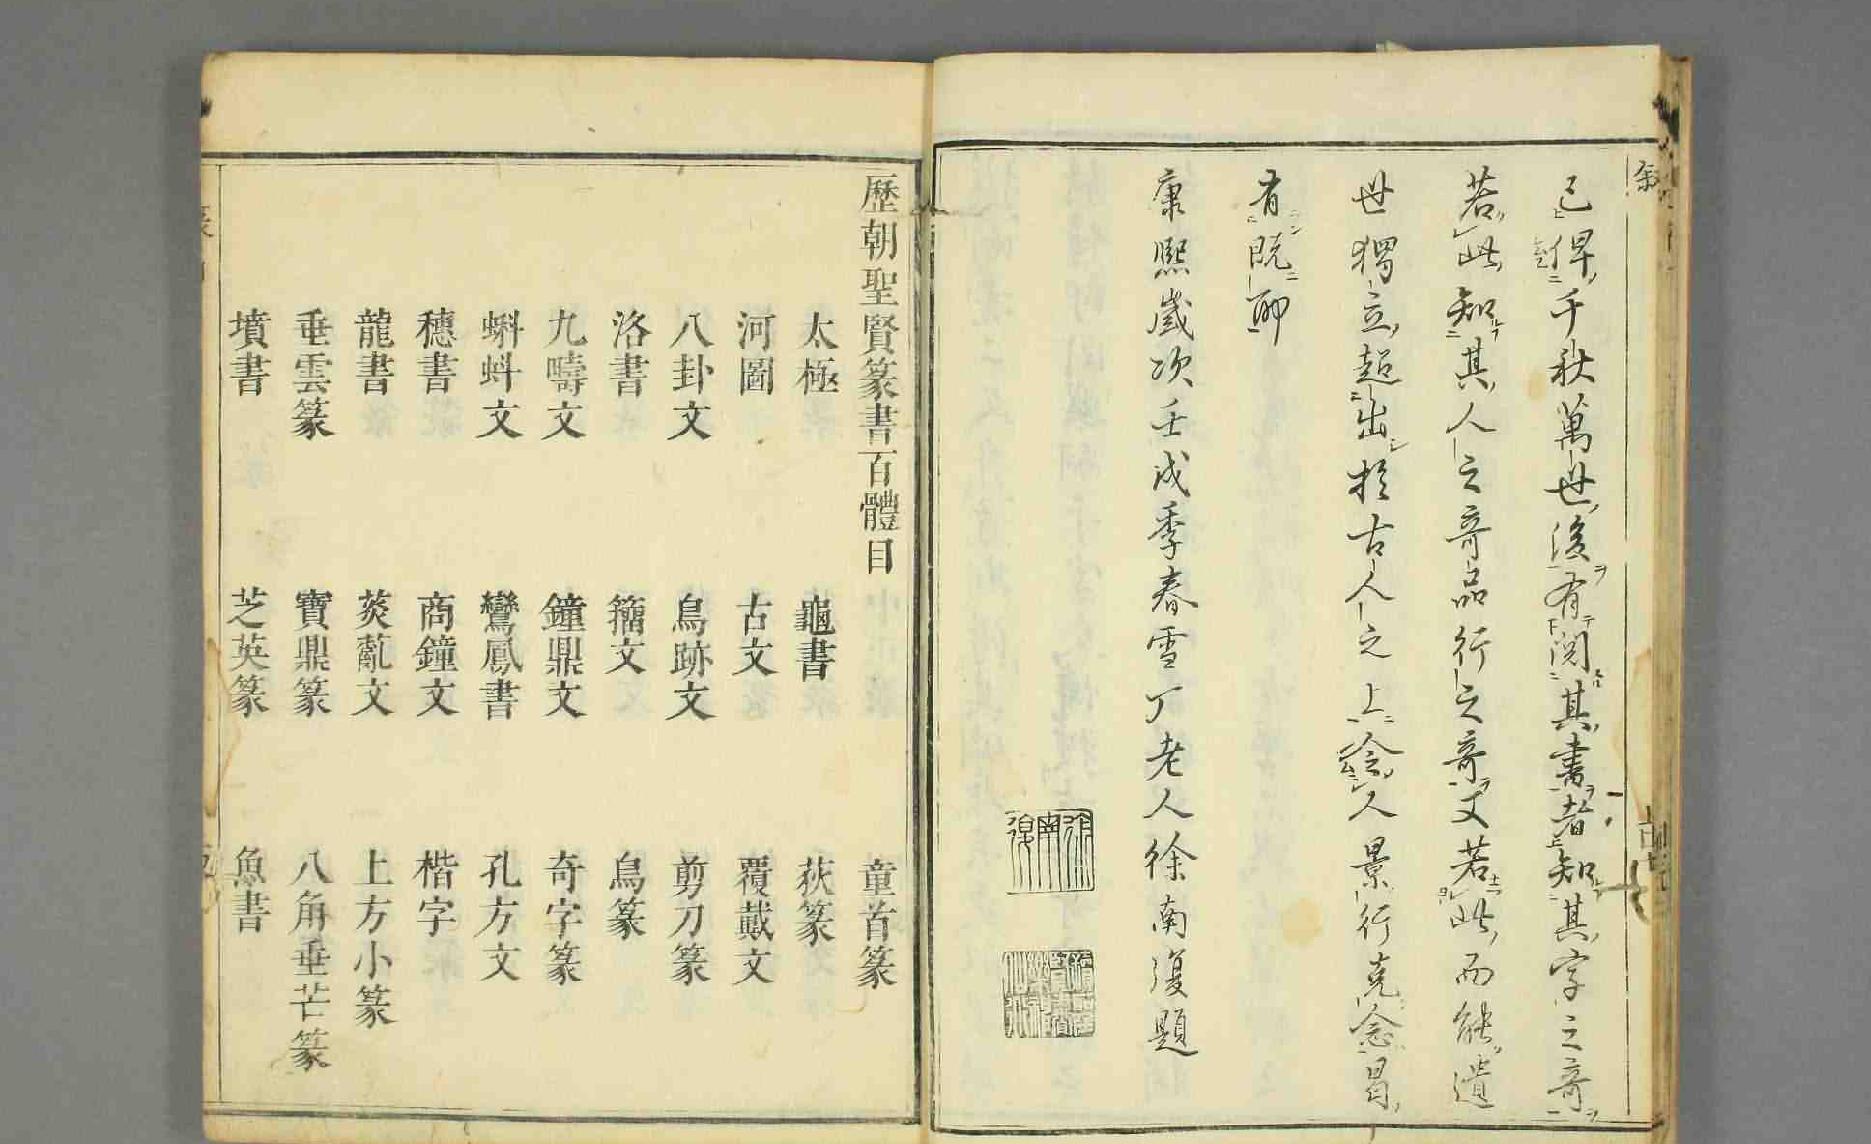 已俾千秋萬世後有閱其書者知其字之奇
若此知其人之奇品行之奇又若此而能遺
世獨立超出於古人之上令人景行克念曷
有既耶
康熙歲次壬戌季春雪丁老人徐南復題
歷朝聖賢篆書百體目
童首篆
太極 龜書 荻篆
河圖 古文 覆戴文
八卦文 鳥跡文 剪刀篆
洛書 籀文 鳥篆
九疇文 鐘鼎文 奇字篆
蝌蚪文 鸞鳳書 孔方文
穗書 商鐘文 楷字
龍書 菼薍文 上方小篆
垂雲篆 寶鼎篆 八角垂芒篆
墳書 芝英篆 魚書